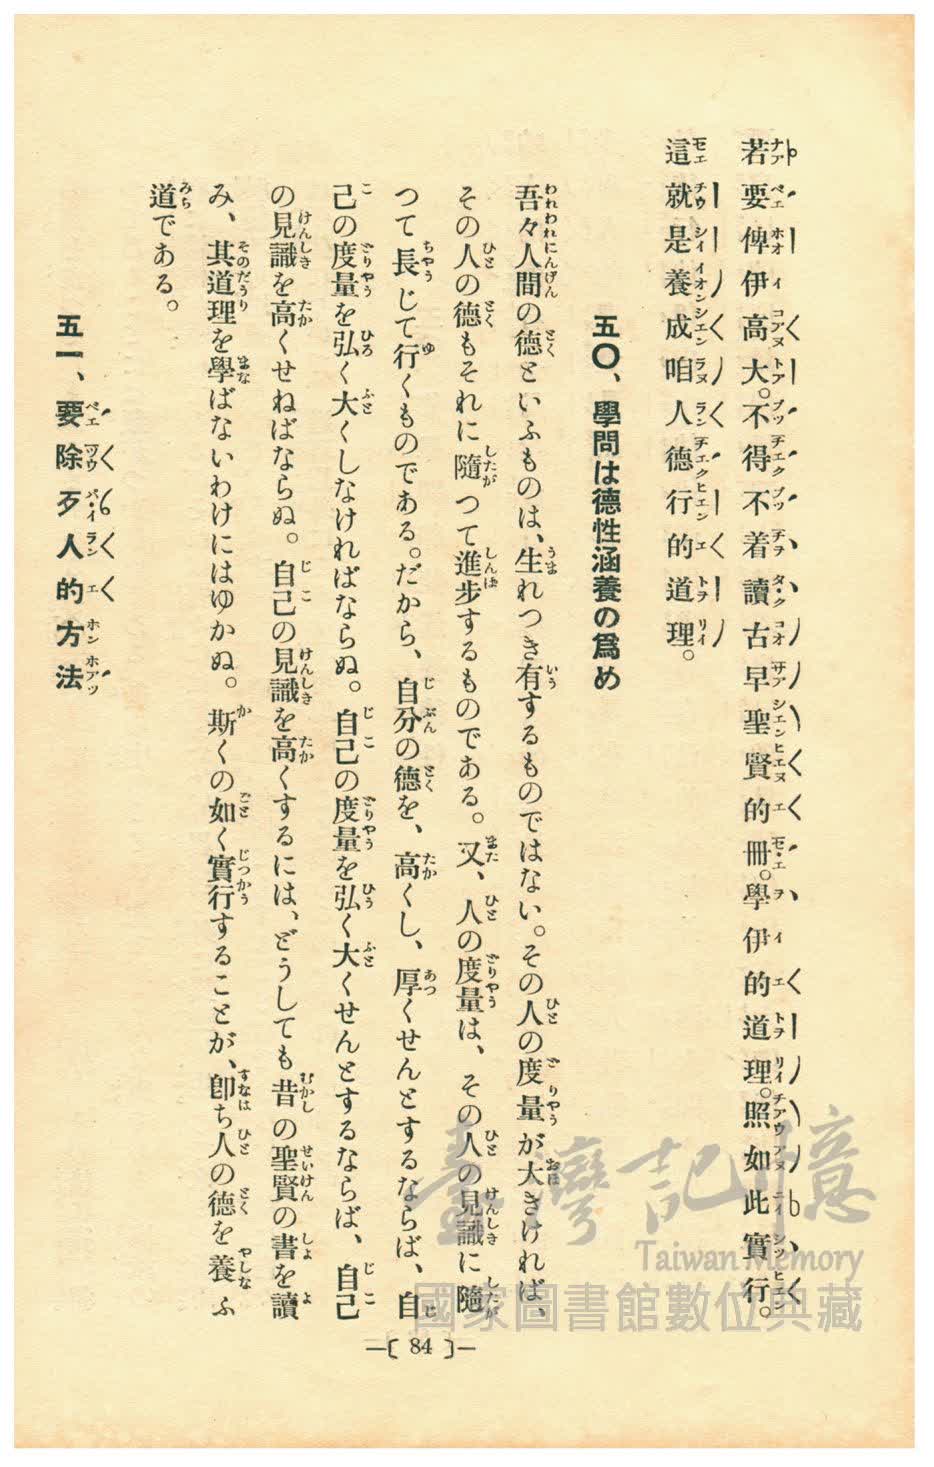 若要俾伊高大。不得不着讀古早聖賢的冊。學伊的道理。照如此實行。
這就是養成咱人德行的道理。
五〇、學問は德性涵養の爲め
吾々人間の德といふものは、生れつき有するものではない。その人の度量が大きければ、
その人の德もそれに隨つて進步するものである。又、人の度量は、その人の見識に隨
つて長じて行くものである。だから、自分の德を、高くし、厚くせんとするならば、自
己の度量を弘く大くしなければならぬ。自己の度量を弘く大くせんとするならば、自己
の見識を高くせねばならぬ。自己の見識を高くするには、どうしても昔の聖賢の書を讀
み、其道理を學ばないわけにはゆかぬ。斯くの如く實行することが、卽ち人の德を養ふ
道である。
五一、要除歹人的方法
—〔 84 〕—
臺灣記憶
Taiwan Memory
國家圖書館數位典藏